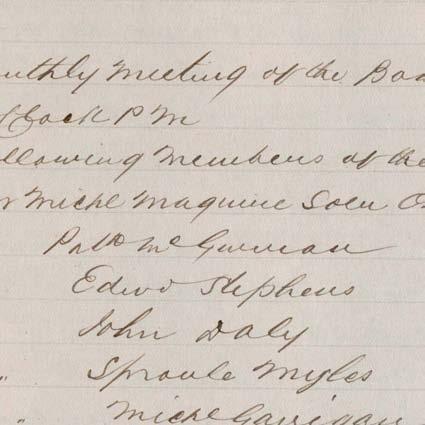 onthly Meeting of the Boa
Clock P M
ollowing Members of the
r Michl Maguire Solr
Patk Mc Gurman
Edwd Stephens
John Daly
" Sproule Myles
" Michl Garrigan